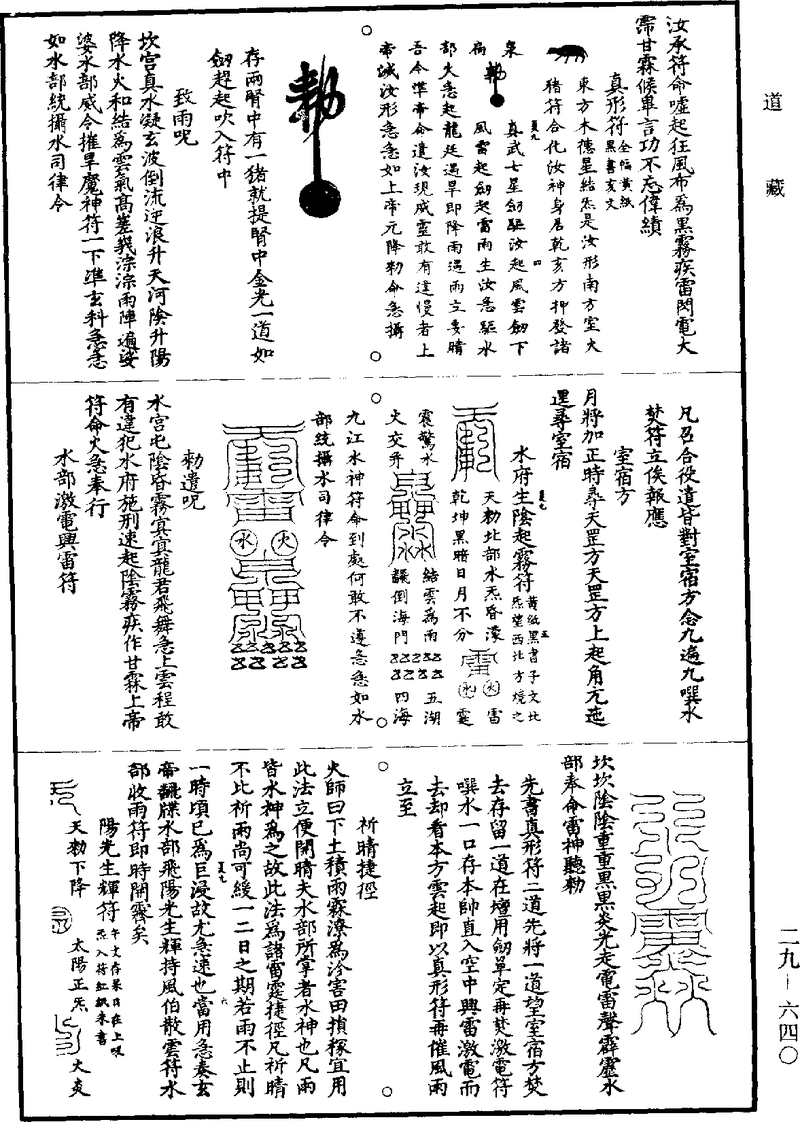 道藏
汝承符命噓起狂風布為黑霧疾雷閃電大
霈甘霖候畢言功不忘偉績
真形符 全幅黃紙黑書亥文
東方木德星結炁是汝形南方室火
猪符合化汝神身居乾亥方押發諸
真武七星劒驅汝起風雲劒下
風雷起劒起雷雨生汝急驅水
部火急起龍廷遇旱即降雨遇雨立要晴
吾今準帝命遣汝現威靈敢有違慢者上
帝滅汝形急急如上帝元降勑命急攝
勑
存兩腎中有一猪就提腎中金光一道如
劒趕起吹入符中
致雨呪
坎宮真水凝玄波倒流逆浪升天河陰升陽
降水火和結為雲氣高羞羙淙淙雨陣遍娑
婆水部威令摧旱魔神符一下準玄科急急
如水部統攝水司律令
凡召合役遣皆對室宿方念九遍九噀水
焚符立俟報應
室宿方
月將加正時尋天罡方天罡方上起角亢迤
邐尋室宿
水府生陰起霧符 黃紙黑書子文北炁望西北方境之
天勑北部水炁昏濛
乾坤黑暗日月不分
雷 火 水 雷霆
震驚水
火交升
結雲為雨
飜倒海門
五湖
四海
九江水神符命到處何敢不遵急急如水
部統攝水司律令
火 水
勑遣呪
水宮屯陰昏霧冥冥龍君飛舞急上雲程敢
有違犯水府施刑速起陰霧疾作甘霖上帝
符命火急奉行
水部激電興雷符
坎坎陰陰重重黑黑炎光走電雷聲霹靂水
部奉命雷神聽勑
先書真形符二道先將一道望室宿方焚
去存留一道在壇用劒單定再焚激電符
噀水一口存本帥直入空中興雷激電而
去却看本方雲起即以真形符再催風雨
立至
祈晴捷徑
火師曰下土積雨霖潦為沴害田損稼宜用
此法立便開晴夫水部所掌者水神也凡雨
皆水神為之故此法為諸雷霆捷徑凡祈晴
不比祈雨尚可緩一二日之期若雨不止則
一時頃已為巨浸故尤急速也當用急奏玄
帝飜牒水部飛陽光生輝持風伯散雲符水
部收雨符即時開霽矣
陽光生輝符 午文存杲日在上吸炁入符紅紙朱書
天勑下降
太陽正炁
火炎
二九—六四〇